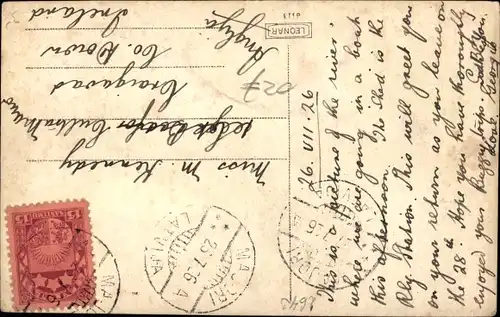 26. VII. 26
This is a picture of the river
where we are going in a boat
this afternoon. The shed is the
Rly. Station. This will greet you
on your return as you leave on
the 28th. Hope you have thoroughly
enjoyed your trip.
Love
Georg
Miss M. Kennedy
Craigavad
Co. Down
Ireland
Anglija
LEONAR
027
MAJORI
LATVIJA
25.7.26 4
15